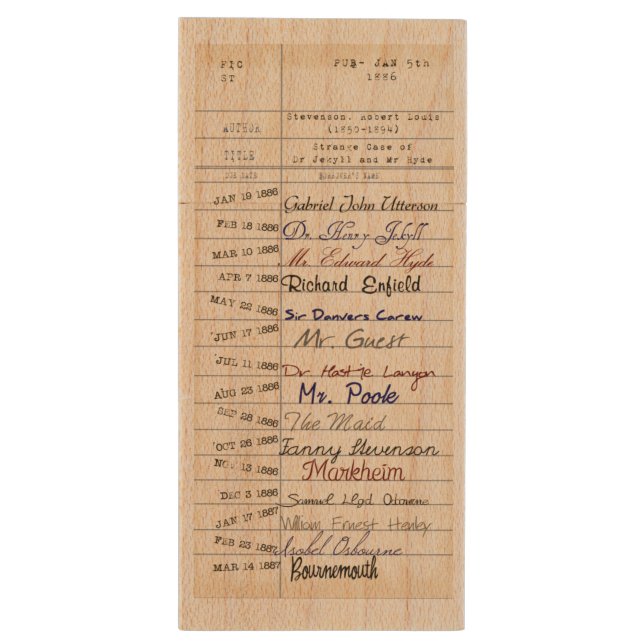 FIC PUB- JAN 5th
ST 1886
Stevenson. Robert Louis
AUTHOR (1850-1894)
Strange Case of
TITLE Dr Jekyll and Mr Hyde
DUE DATE BORROWER'S NAME
JAN 19 1886 Gabriel John Utterson
FEB 18 1886 Dr. Henry Jekyll
MAR 10 1886 Mr. Edward Hyde
APR 7 1886 Richard Enfield
MAY 22 1886 Sir Danvers Carew
JUN 17 1886 Mr. Guest
JUL 11 1886 Dr. Hastie Lanyon
AUG 23 1886 Mr. Poole
SEP 28 1886 The Maid
OCT 26 1886 Fanny Stevenson
NOV 13 1886 Markheim
DEC 3 1886 Samuel Llyd Osbourne
JAN 17 1887 William Ernest Henley
FEB 23 1887 Isobel Osbourne
MAR 14 1887 Bournemouth